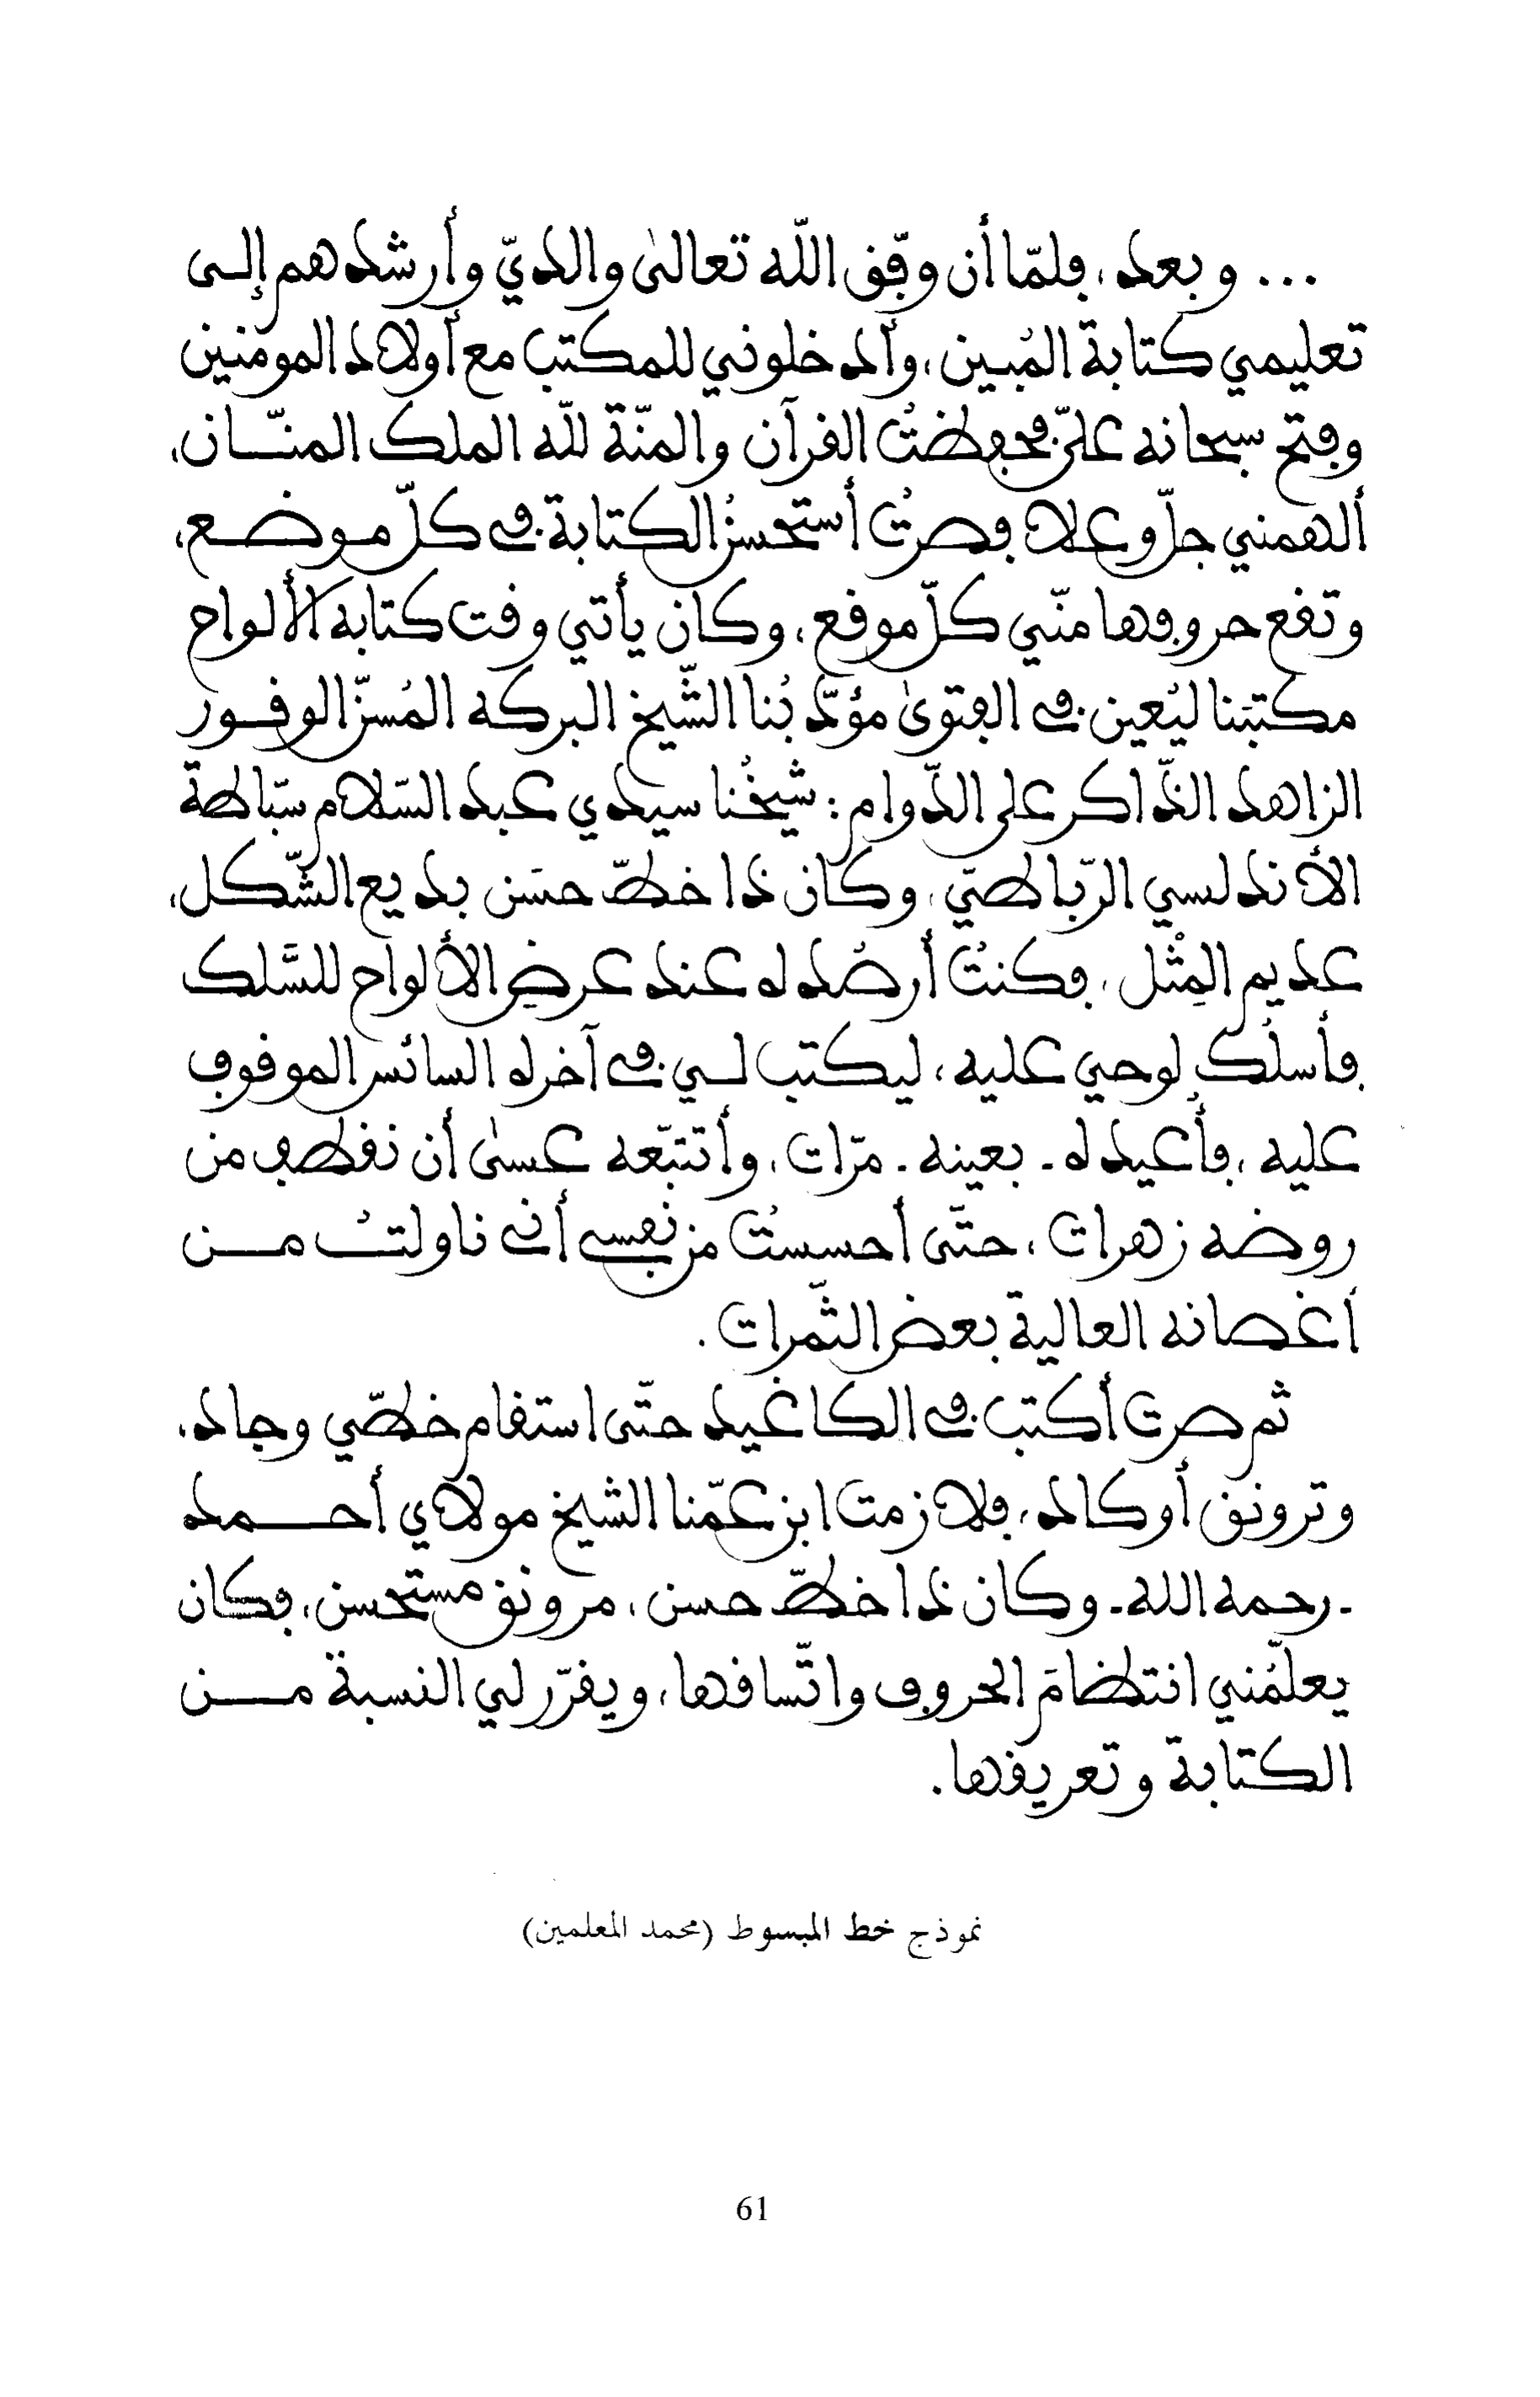 ... وبعد، فلمّا أن وفّق اللّه تعالىٰ والديّ وأرشدهم إلى
تعليمي كتابة المُبين، وأدخلوني للمكتب مع أولاد المومنين
وفتح سبحانه عليّ فحفظتُ القرآن والمنّة للّه الملك المنّـان،
ألهمني جلّ وعلا فصرتُ أستحسنُ الكتابة في كلّ موضـع،
وتقع حروفها منّي كلّ موقع، وكان يأتي وقت كتابه الألواح
مكتبَنا ليُعين في الفتوىٰ مؤدّبُنا الشّيخ البركه المُسنّ الوقـور
الزاهد الذّاكر على الدّوام: شيخُنا سيدي عبد السّلام سبّاطة
الأندلسي الرّباطيّ، وكان ذا خطّ حسَن بديع الشّكل،
عديم المِثْل، فكنتُ أرصُد له عند عرضِ الألواح للسَّلك
فأسلُك لوحي عليه، ليكتب لـي في آخر له السائس الموقوف
عليه، فأُعيد له - بعينه - مرّات، وأتتبّعه عسىٰ أن نقطف من
روضه زهرات، حتّى أحسستُ من نفسي أني ناولتـُ مـن
أغصانه العالية بعض الثّمرات.
ثم صرت أكتب في الكاغيد حتّى استقام خطّي وجاد،
وترونق أو كاد، فلازمت ابن عمّنا الشيخ مولاي أحـمد
- رحمه الله - وكان ذا خطّ حسن، مرونق مستحسن، فكان
يعلّمُني انتظامَ الحروف واتّساقها، ويقرّر لي النسبة مـن
الكتابة وتعريقها.
نموذج خط المبسوط (محمد المعلمين)
61